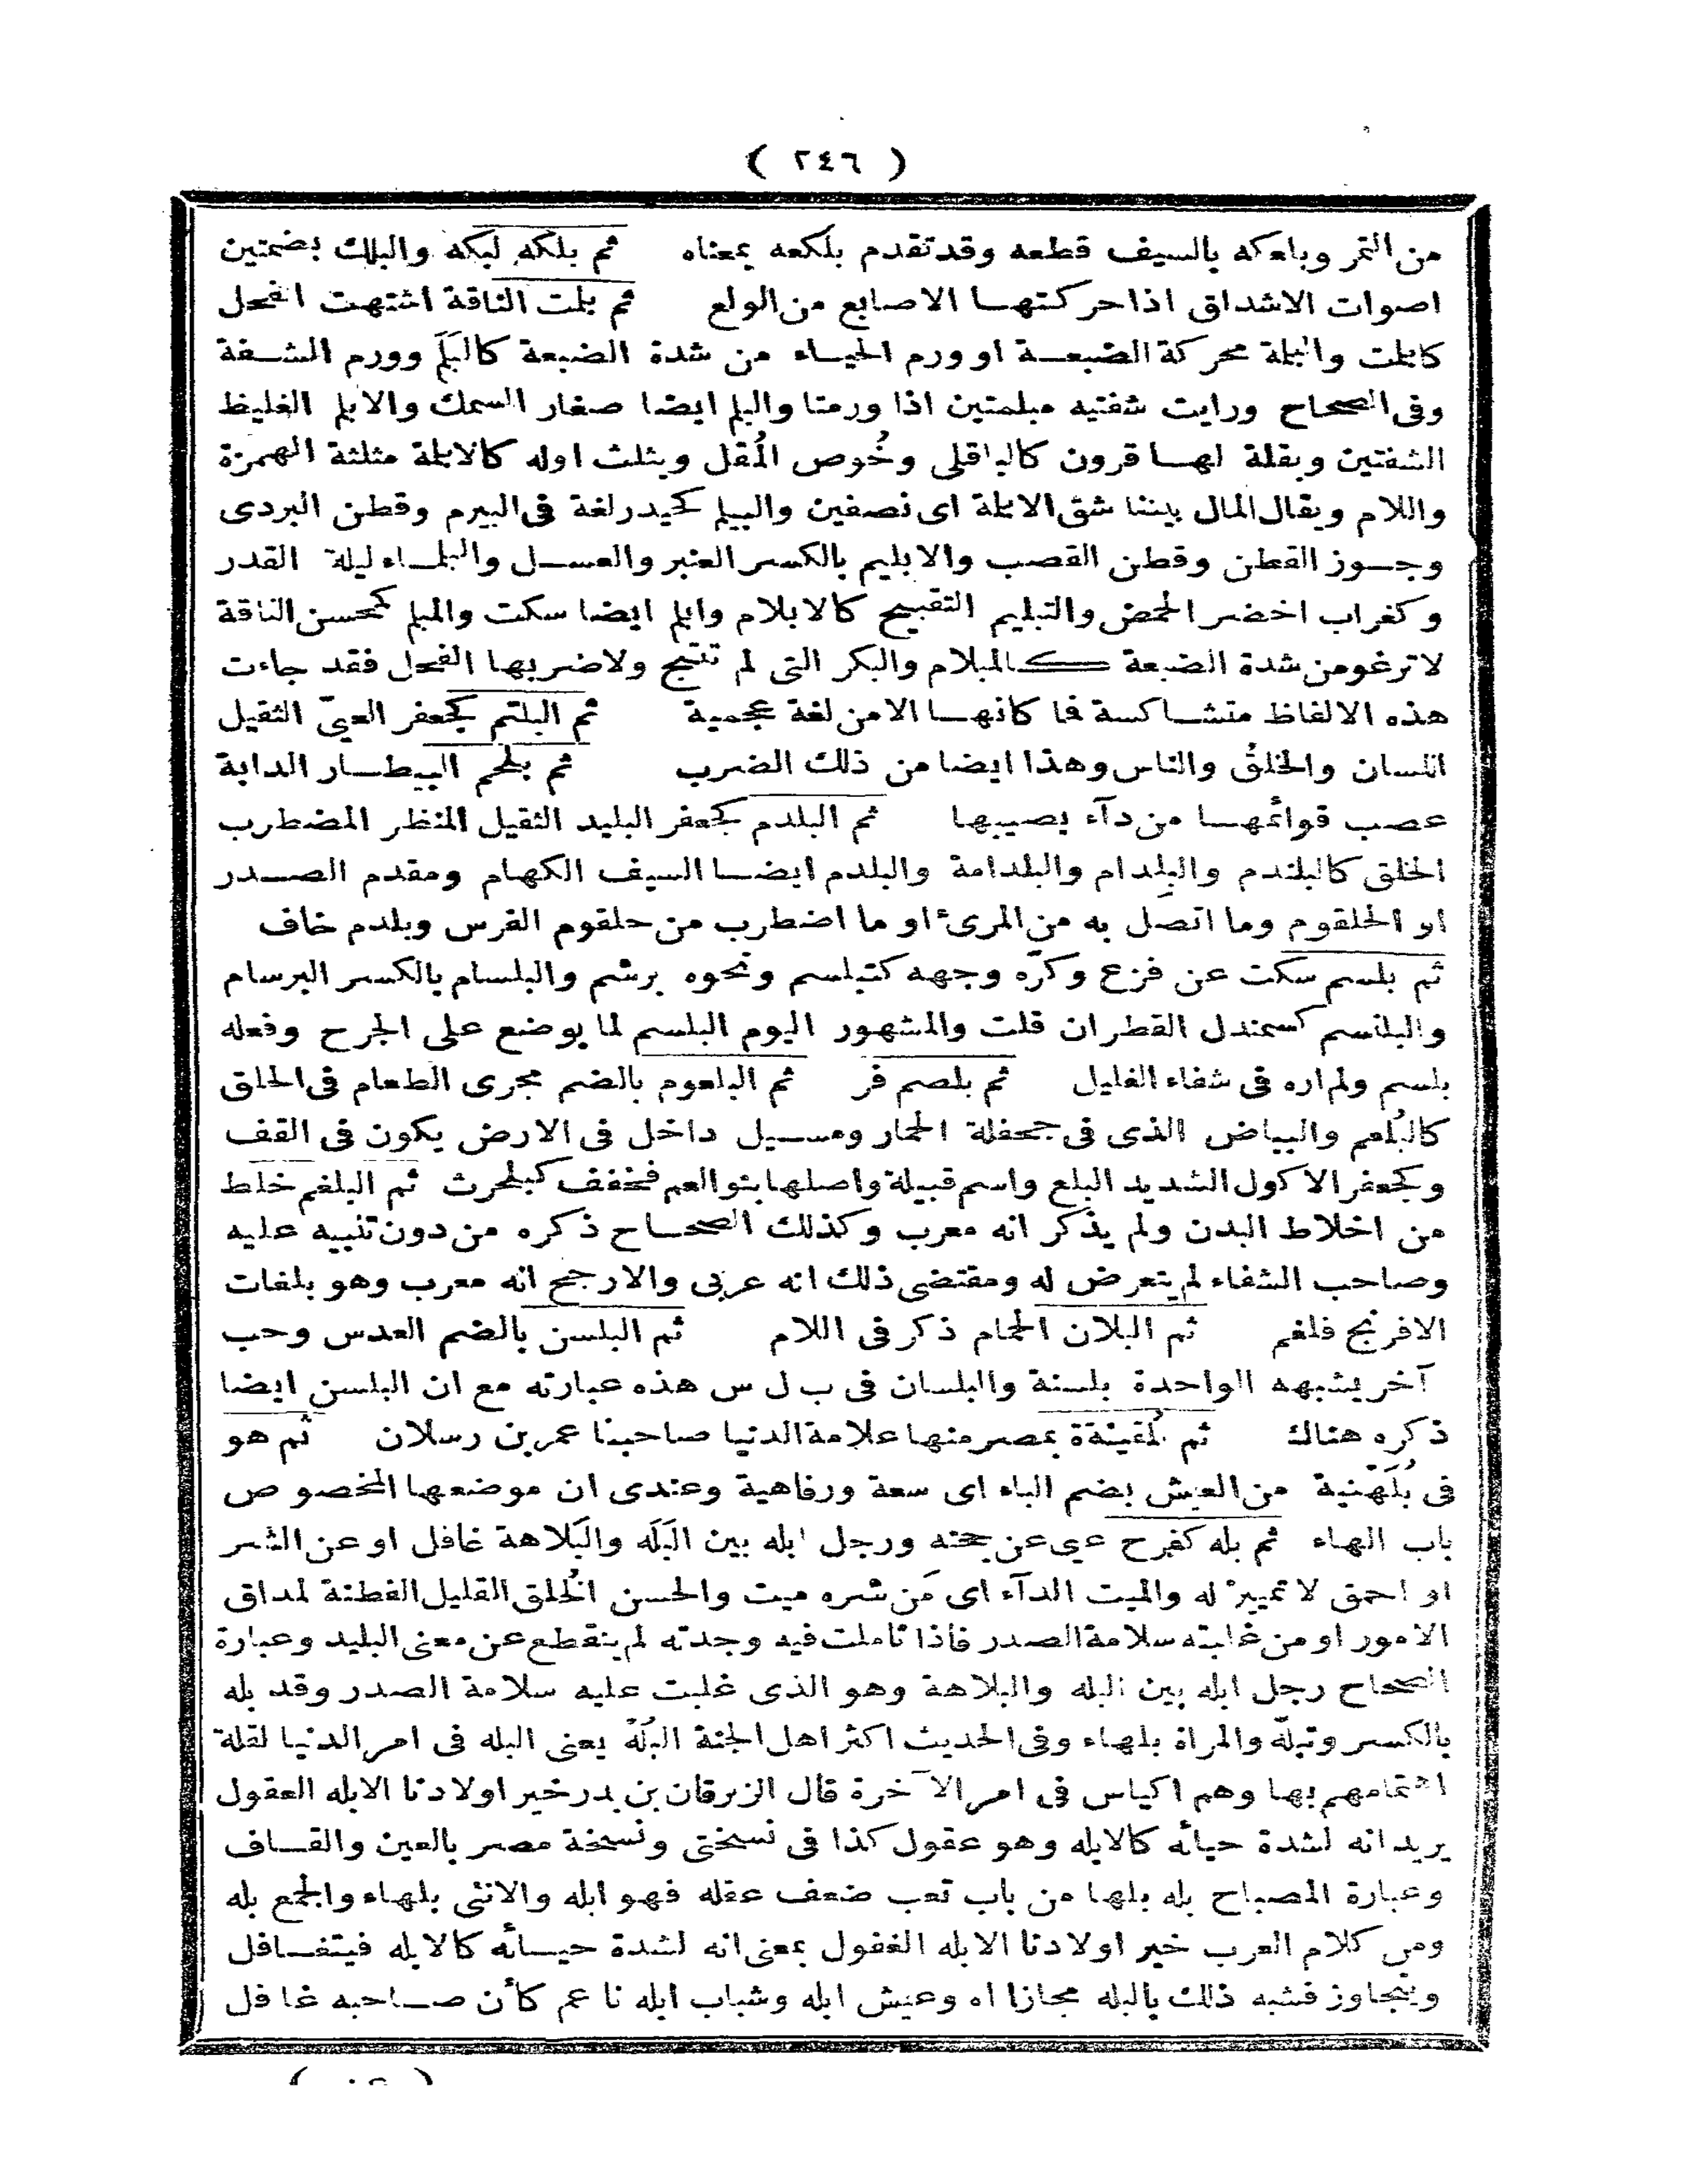 ( ٢٤٦ )
من التمر وبلعكه بالسيف قطعه وقد تقدم بلكعه بمعناه ثم بلكه لبكه والبلك بضمتين
اصوات الاشداق اذا حركتها الاصابع من الولع ثم بلمت الناقة اشتهت الفحل
كابلمت والبلمة محركة الضبعة او ورم الحياء من شدة الضبعة كالبَلَم وورم الشفة
وفى الصحاح ورايت شفتيه مبلمتين اذا ورمتا والبلم ايضا صغار السمك والابلم الغليظ
الشفتين وبقلة لها قرون كالباقلى وخُوص المُقل ويثلث اوله كالابلمة مثلثة الهمزة
واللام ويقال المال بيننا شق الابلمة اى نصفين والبيلم كحيدر لغة فى البيرم وقطن البردى
وجوز القطن وقطن القصب والابليم بالكسر العنبر والعسل والبلماء ليلة القدر
وكغراب اخضر الحمض والتبليم التقبيح كالابلام وابلم ايضا سكت والمبلم كمحسن الناقة
لا ترغو من شدة الضبعة كالمبلام والبكر التى لم تنتج ولا ضربها الفحل فقد جاءت
هذه الالفاظ متشاكسة فما كانها الا من لغة عجمية ثم البلتم كجعفر العيىّ الثقيل
اللسان والخلقُ والناس وهذا ايضا من ذلك الضرب ثم بلحم البيطار الدابة
عصب قوائمها من دآء يصيبها ثم البلدم كجعفر البليد الثقيل المنظر المضطرب
الخلق كالبلندم والبِلدام والبلدامة والبلدم ايضا السيف الكهام ومقدم الصدر
او الحلقوم وما اتصل به من المرىء او ما اضطرب من حلقوم الفرس وبلدم خاف
ثم بلسم سكت عن فزع وكرّه وجهه كتبلسم ونحوه برشم والبلسام بالكسر البرسام
والبلنسم كسمندل القطران قلت والمشهور اليوم البلسم لما يوضع على الجرح وفعله
بلسم ولم اره فى شفاء الغليل ثم بلصم فر ثم البلعوم بالضم مجرى الطعام فى الحلق
كالبُلعم والبياض الذى فى جحفلة الحمار ومسيل داخل فى الارض يكون فى القف
وكجعفر الاكول الشديد البلع واسم قبيلة واصلها بنو العم فخفف كبلحرث ثم البلغم خلط
من اخلاط البدن ولم يذكر انه معرب وكذلك الصحاح ذكره من دون تنبيه عليه
وصاحب الشفاء لم يتعرض له ومقتضى ذلك انه عربى والارجح انه معرب وهو بلغات
الافرنج فلغم ثم البلان الحمام ذكر فى اللام ثم البلسن بالضم العدس وحب
آخر يشبهه الواحدة بلسنة والبلسان فى ب ل س هذه عبارته مع ان البلسن ايضا
ذكره هناك ثم بُلقينة بمصر منها علامة الدنيا صاحبنا عمر بن رسلان ثم هو
فى بُلَهْنية من العيش بضم الباء اى سعة ورفاهية وعندى ان موضعها المخصوص
باب الهاء ثم بله كفرح عيى عن حجته ورجل ابله بين البَلَه والبَلاهة غافل او عن الشر
او احمق لا تمييز له والميت الدآء اى مَن شره ميت والحسن الخُلق القليل الفطنة لمداق
الامور او من غلبته سلامة الصدر فاذا تاملت فيه وجدته لم ينقطع عن معنى البليد وعبارة
الصحاح رجل ابله بين البله والبلاهة وهو الذى غلبت عليه سلامة الصدر وقد بله
بالكسر وتبلّه والمراة بلهاء وفى الحديث اكثر اهل الجنة البُلْهُ يعنى البله فى امر الدنيا لقلة
اهتمامهم بها وهم اكياس فى امر الآخرة قال الزبرقان بن بدر خير اولادنا الابله العقول
يريد انه لشدة حيائه كالابله وهو عقول كذا فى نسختى ونسخة مصر بالعين والقاف
وعبارة المصباح بله بلها من باب تعب ضعف عقله فهو ابله والانثى بلهاء والجمع بله
ومن كلام العرب خير اولادنا الابله الغفول بمعنى انه لشدة حيائه كالابله فيتغافل
ويتجاوز فشبه ذلك بالبله مجازا اه وعيش ابله وشباب ابله ناعم كأن صاحبه غافل